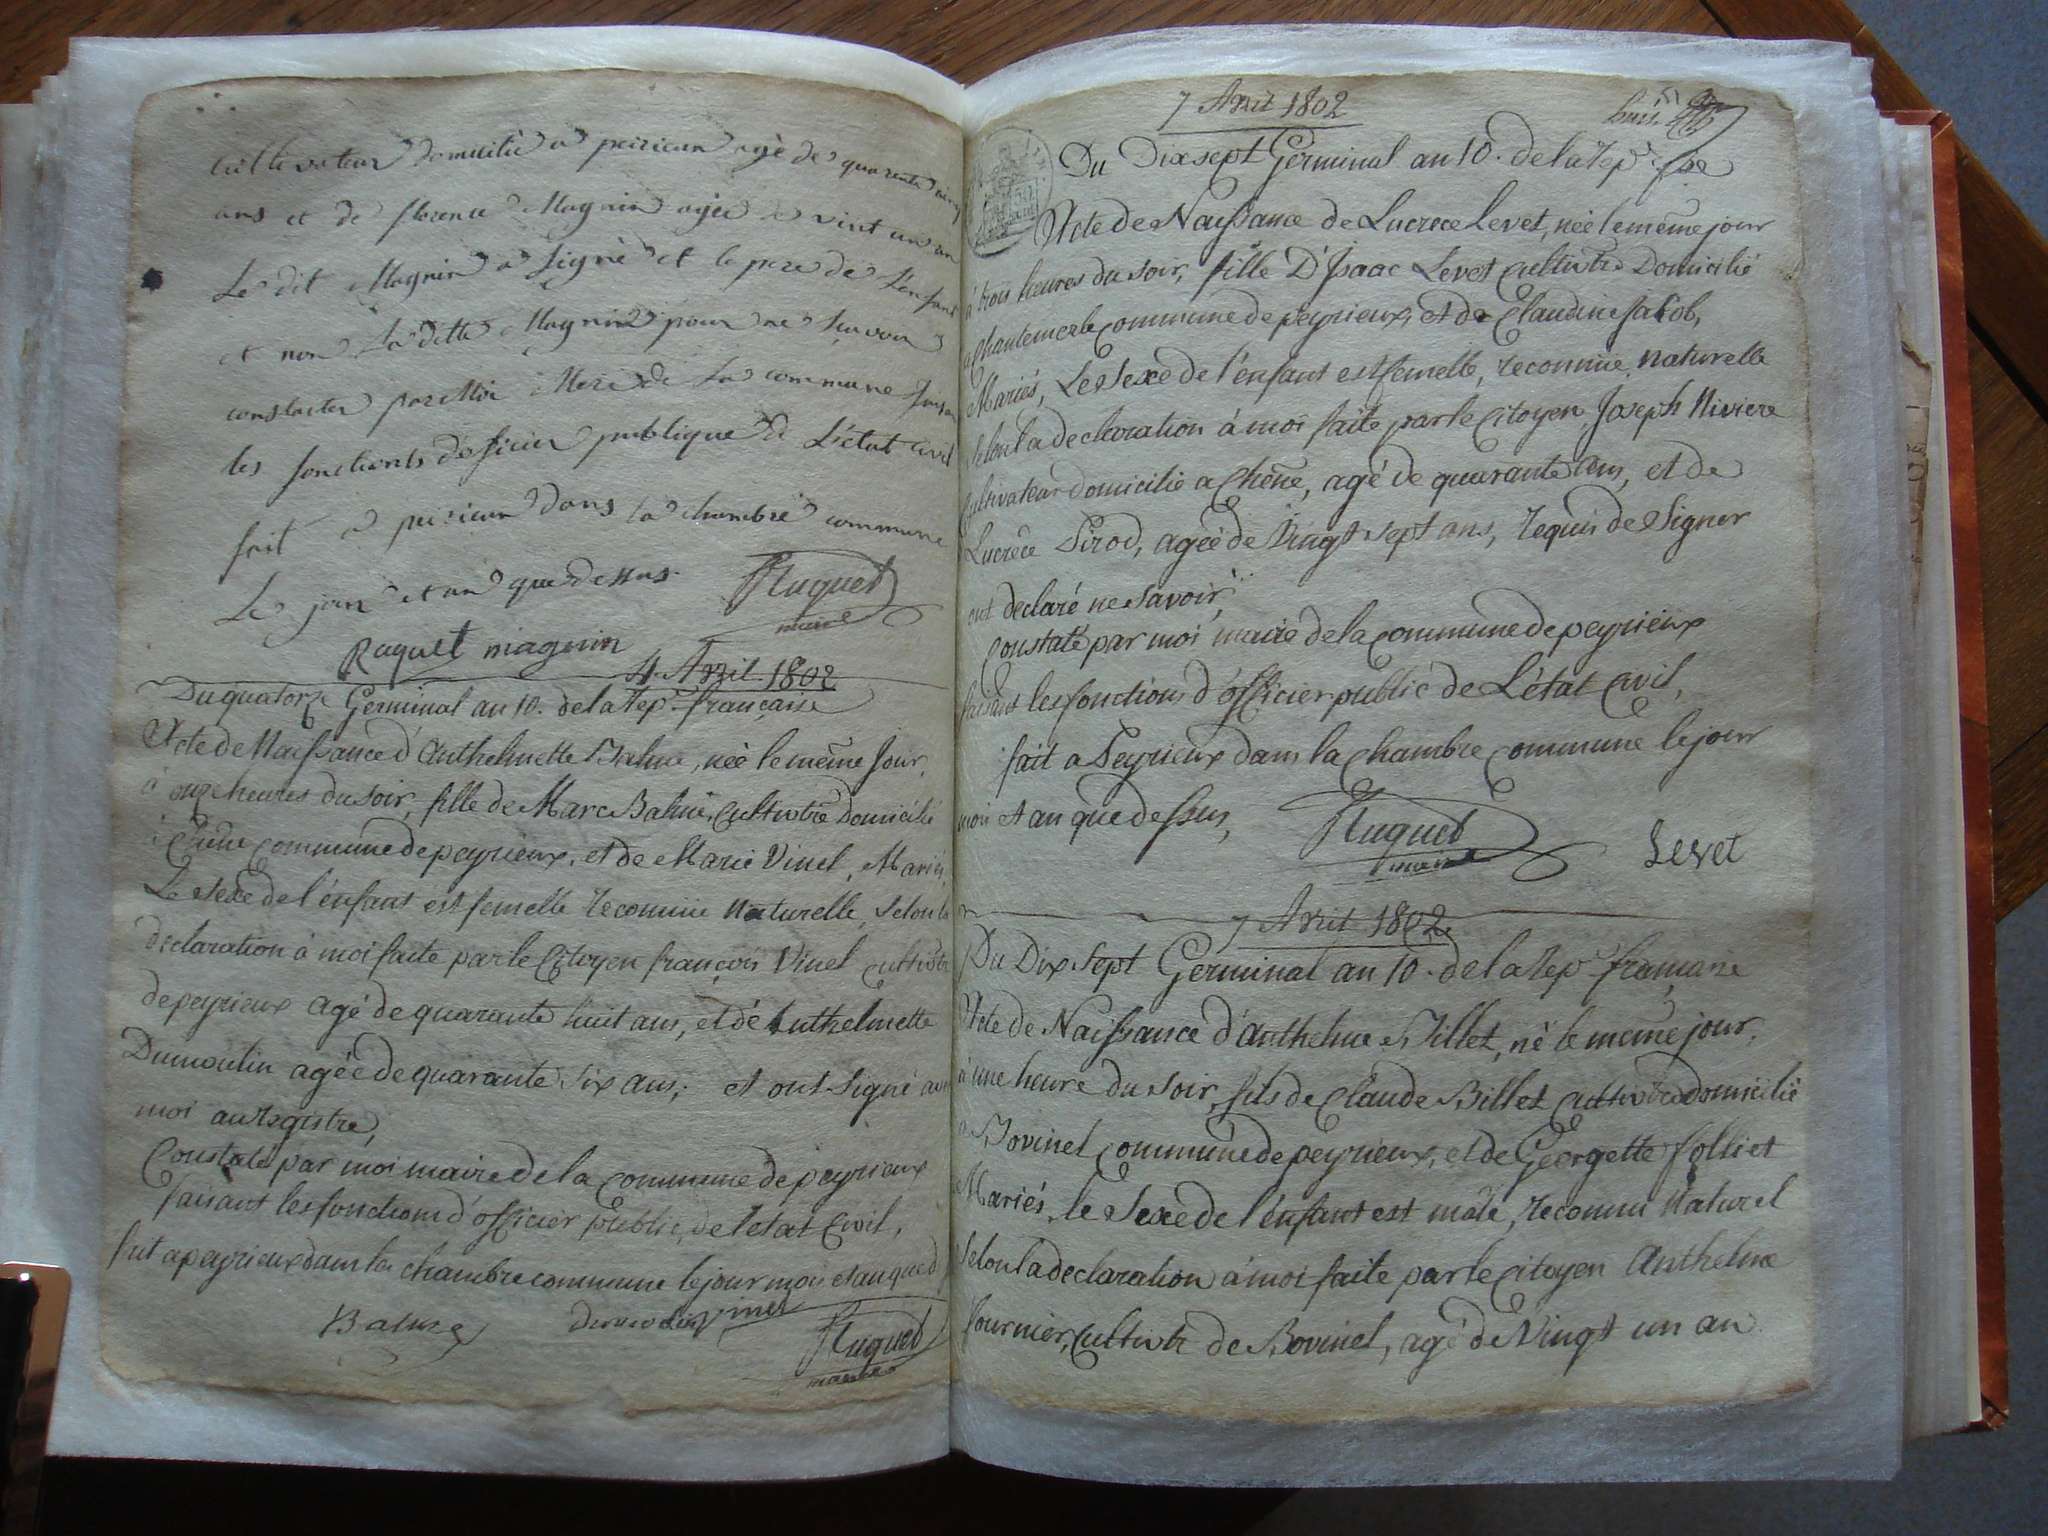 cultivateur domicilié a peirieux agé de quarente cinq
ans et de florence Magnin agée de vint un an
Le dit Magnin a signé et le pere de l'enfant
et non la ditte Magnin pour ne savoir
constater par Moi Mere de la commune faisan
les fonctionts d'oficier publique de L'état civil
fait a peirieux dans la chambre commune
Le jour et an que dessus.
Huguet
maire
Raquet magnin
4 Avril 1802
Du quatorze Germinal an 10. de la rep. française
Acte de Naissance d'Anthelmette Balme, née le même jour,
à onze heures du soir, fille de Marc Balme, cultivtr. domicilié
à Chêne commune de peyrieux, et de Marie Vinel, Mariés,
Le sexe de l'énfant est femelle reconnue naturelle, selon la
declaration à moi faite par le Citoyen françois Vinel cultivtr
de peyrieux agé de quarante huit ans, et de Anthelmette
Dumoulin agée de quarante six ans; et ont signé avec
moi au registre,
Constaté par moi maire de la commune de peyrieux
faisant les fonctions d'officier public, de l'état civil,
fait a peyrieux dans la chambre commune le jour mois et an que d
Balme Dumoulin vinel
Huguet
maire
7 Avril 1802
huit
Du Dix sept Germinal an 10. de la rep. fse
Acte de Naissance de Lucrece Levet, née le même jour
à trois heures du soir, fille D'Isaac Levet cultivtr. Domicilié
a Chantemerle commune de peyrieux, et de Claudine Jacob,
Mariés, Le sexe de l'énfant est femelle, reconnue naturelle
selon la declaration à moi faite par le citoyen Joseph Riviere
cultivateur domicilié a Chêne, agé de quarante ans, et de
Lucrèce Pirod, agée de Vingt sept ans, requis de signer
ont declaré ne savoir,
Constaté par moi maire de la commune de peyrieux
faisant les fonctions d'officier public de L'état civil,
fait a Peyrieux dans la chambre commune le jour
mois et an que dessus,
Huguet
maire
Levet
7 Avril 1802
Du Dix sept Germinal an 10. de la rep. française
Acte de Naissance d'Anthelme Billet, né le même jour,
à une heure du soir, fils de Claude Billet cultivtr domicilié
a Bovinel commune de peyrieux, et de Georgette folliet
Mariés, le Sexe de l'énfant est mâle, reconnu Naturel
selon la declaration à moi faite par le citoyen Anthelme
fournier, cultivtr de Bovinel, agé de Vingt un an